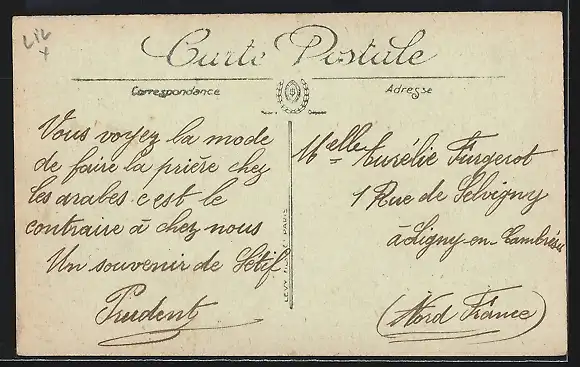 LIL
x
Carte Postale
Correspondance
Adresse
Vous voyez la mode
de faire la prière chez
les arabes c'est le
contraire à chez nous
Un souvenir de Sétif
Prudent
LEVY
PARIS
Melle Aurélie Furgerot
1 Rue de Selvigny
à Ligny-en-Cambrésis
(Nord France)